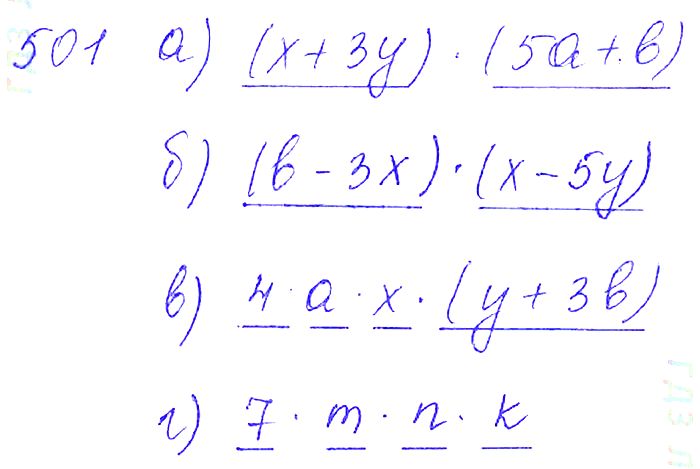 501 а) (x+3y) · (5a+b)
б) (b-3x) · (x-5y)
в) 4 · a · x · (y+3b)
г) 7 · m · n · k